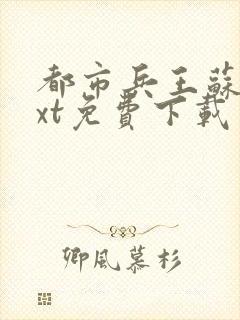 都市兵王蘇
xt免費下載
卿風慕杉